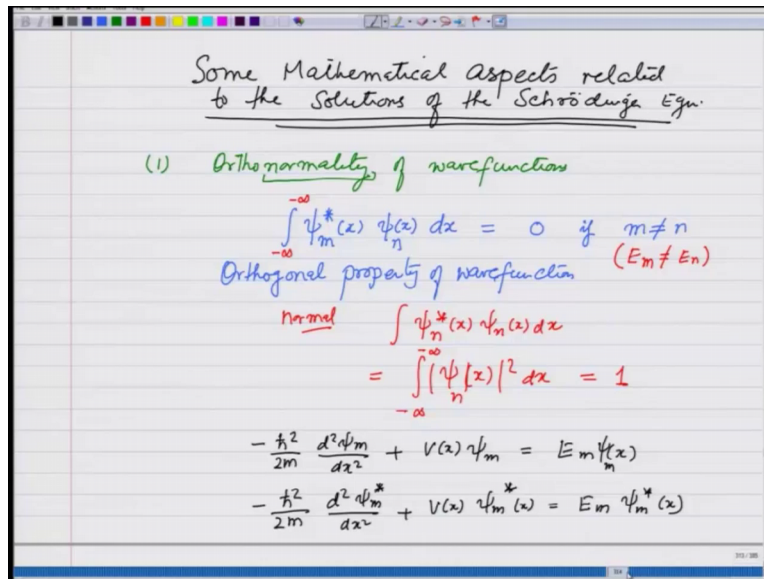 Some Mathematical aspects related
to the Solutions of the Schrödinger Eqn.
(1) Orthonormality of wavefunctions
∫_{-∞}^{-∞} ψ_m^*(x) ψ_n(x) dx = 0 if m ≠ n
(E_m ≠ E_n)
Orthogonal property of wavefunction
normal ∫ ψ_n^*(x) ψ_n(x) dx
= ∫_{-∞}^{-∞} |ψ_n(x)|^2 dx = 1
- ħ^2/2m d^2ψ_m/dx^2 + V(x) ψ_m = E_m ψ_m(x)
- ħ^2/2m d^2ψ_m^*/dx^2 + V(x) ψ_m^*(x) = E_m ψ_m^*(x)